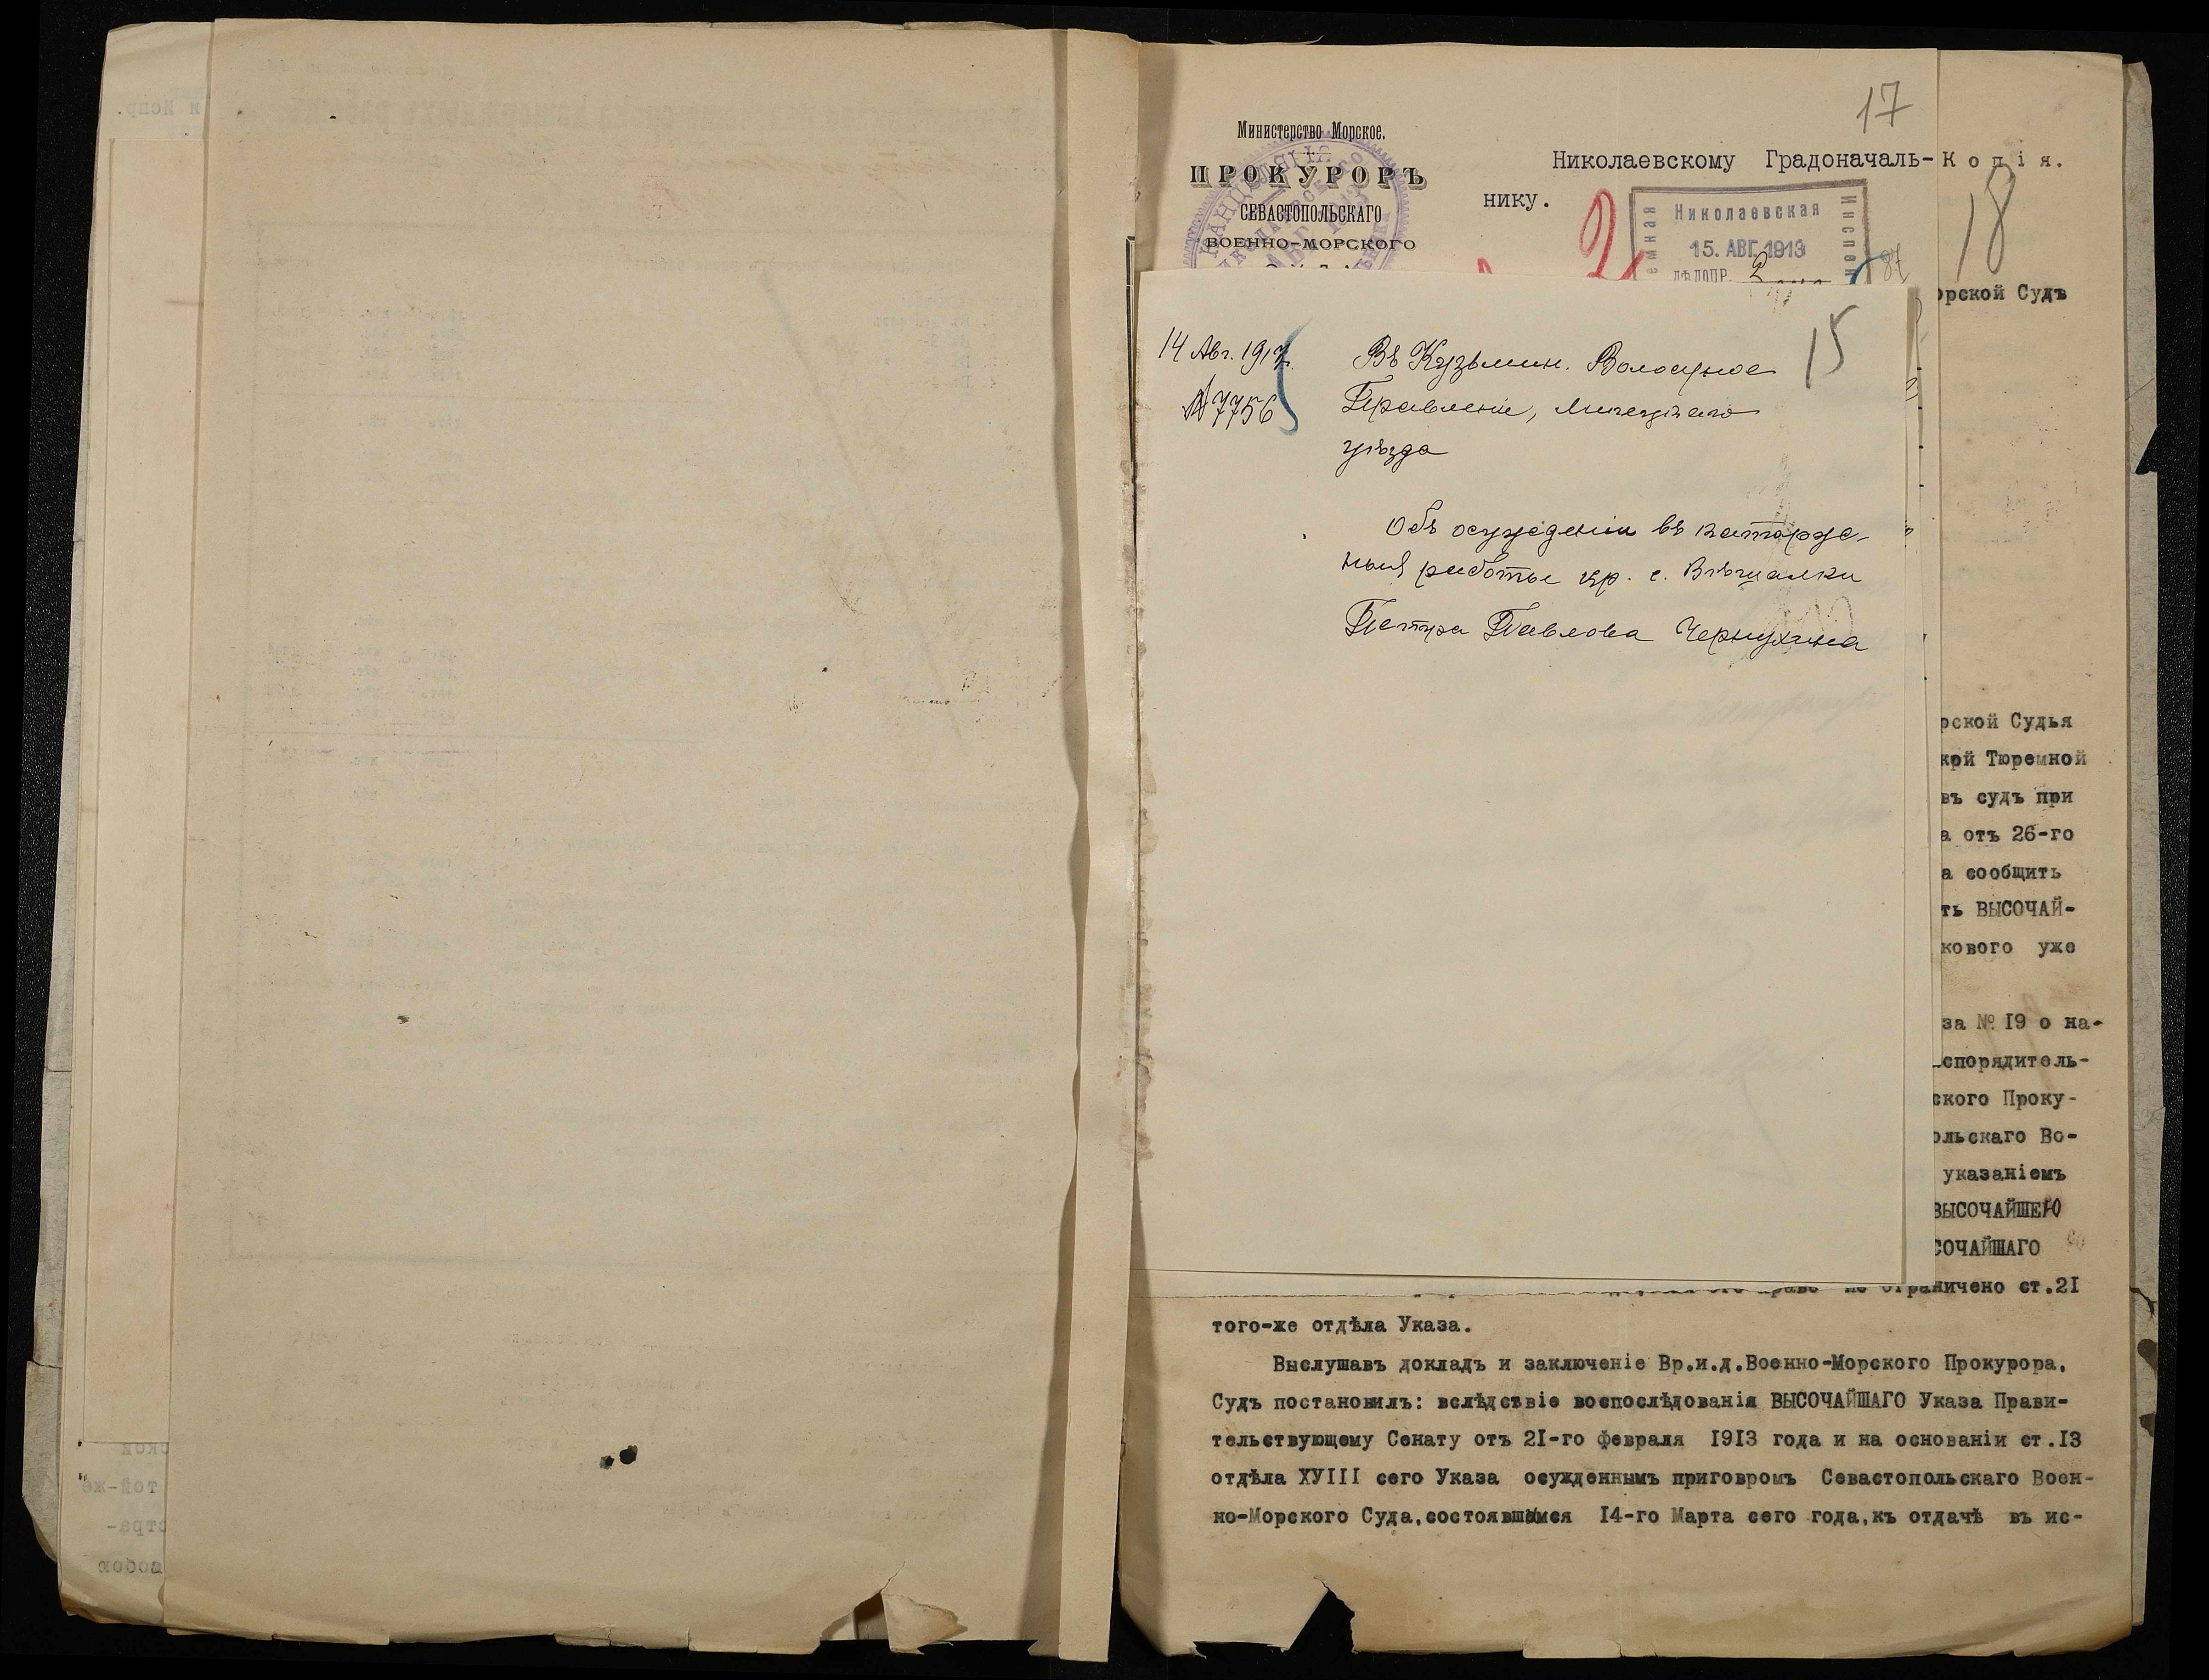 17
Министерство Морское.
ПРОКУРОРЪ
СЕВАСТОПОЛЬСКАГО
ВОЕННО-МОРСКОГО
Николаевскому Градоначаль-
нику.
2
Николаевская
15. АВГ. 1913
ДѢЛОПР. 2
Копія.
18
14 Авг. 191
№7756
15
Въ Кузьмин. Волостное
Правленіе, Липецкаго
уѣзда
Объ осужденіи въ каторж-
ныя работы кр. с. Вѣшалки
Петра Павлова Чернухина
орской Судъ
рской Судья
кой Тюремной
въ судъ при
а отъ 26-го
а сообщить
ть ВЫСОЧАЙ-
кового уже
за № 19 о на-
спорядитель-
ского Проку-
ольскаго Во-
указаніемъ
ВЫСОЧАЙШЕЮ
СОЧАЙШАГО
не ограничено ст.2I
того-же отдѣла Указа.
Выслушавъ докладъ и заключеніе Вр.и.д.Военно-Морского Прокурора,
Судъ постановилъ: вслѣдствіе воспослѣдованія ВЫСОЧАЙШАГО Указа Прави-
тельствующему Сенату отъ 2I-го февраля I9I3 года и на основаніи ст.I3
отдѣла ХУIII сего Указа осужденнымъ приговромъ Севастопольскаго Воен-
но-Морского Суда,состоявшимся I4-го Марта сего года,къ отдачѣ въ ис-